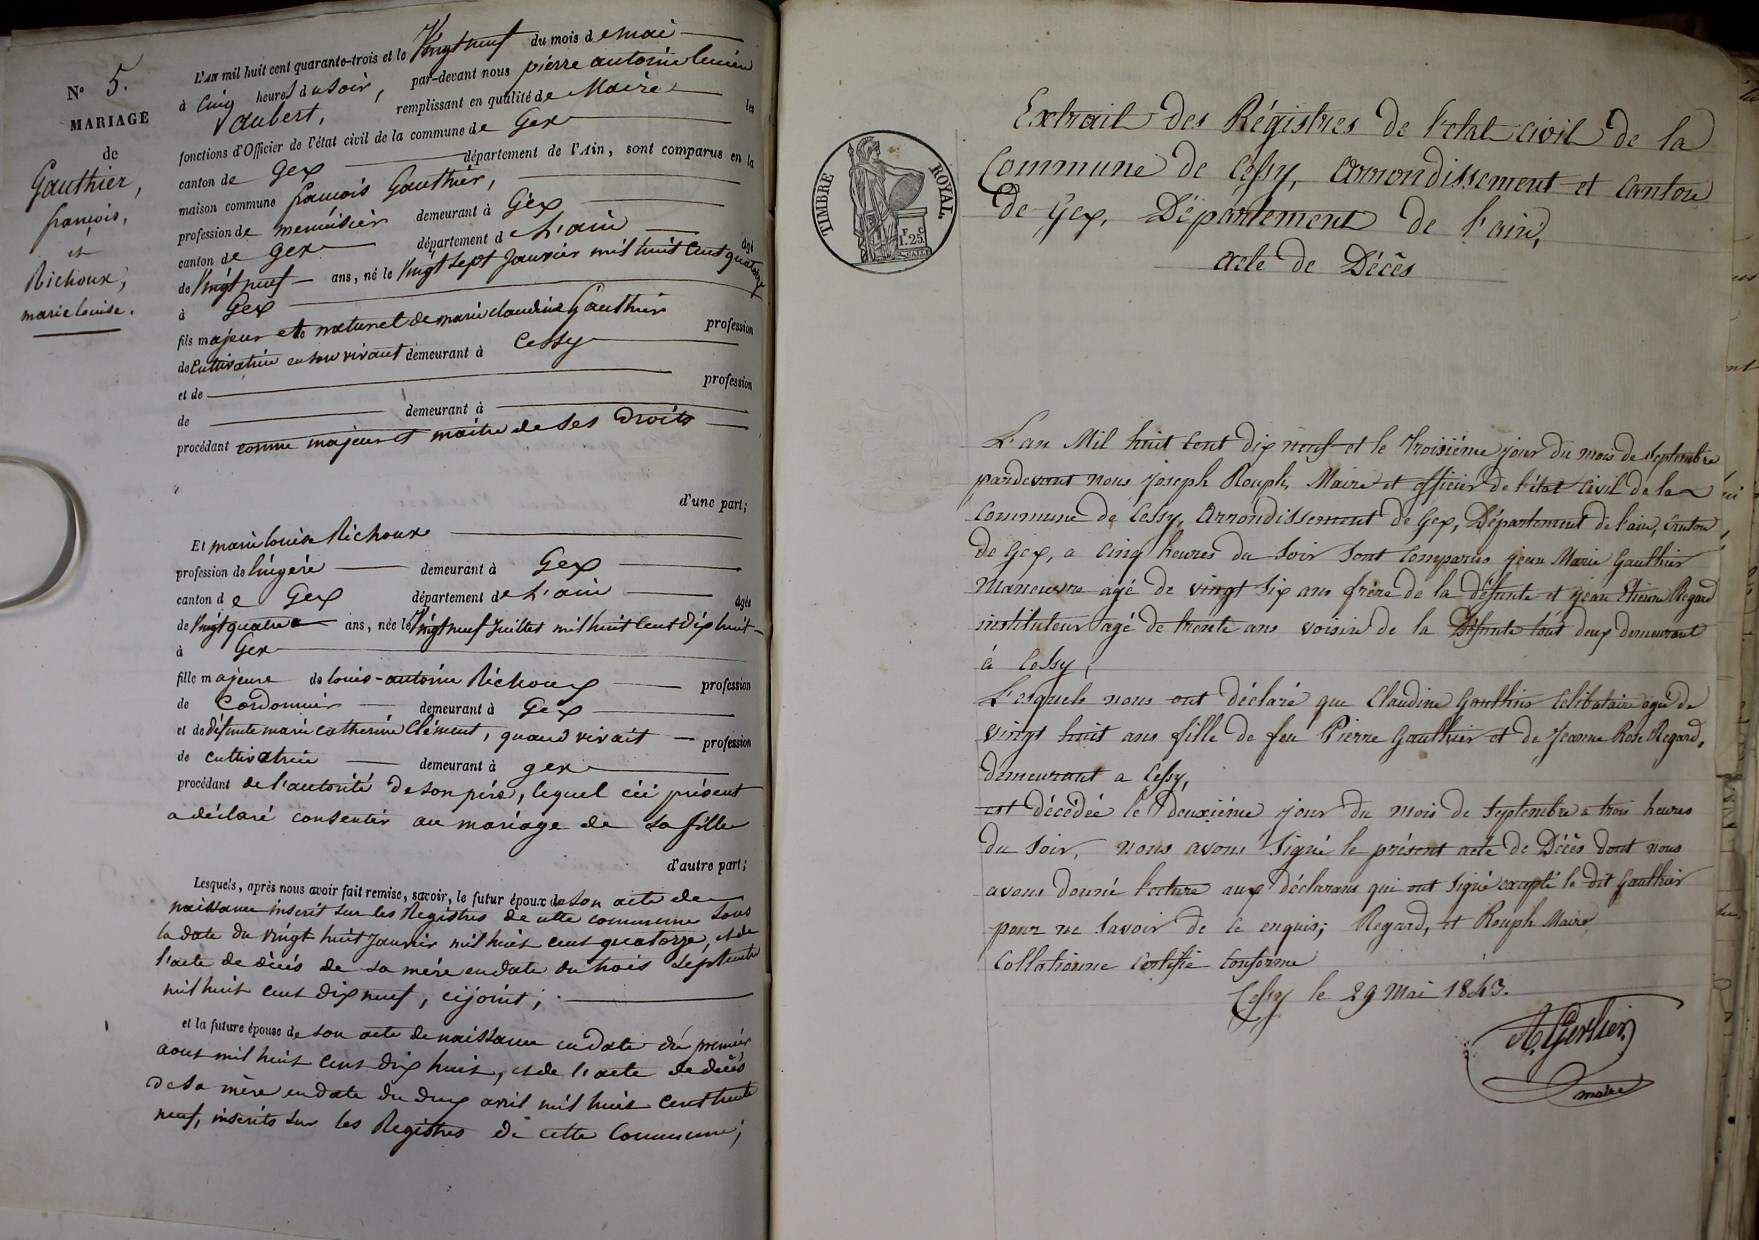 N° 5.
MARIAGE
de
Gauthier,
françois,
et
Richoux,
marie louise.
L'an mil huit cent quarante-trois et le Vingt neuf du mois de mai
à Cinq heures du soir, par-devant nous pierre antoine lucien
Jaubert, remplissant en qualité de Maire les
fonctions d'Officier de l'état civil de la commune de Gex
canton de Gex département de l'Ain, sont comparus en la
maison commune françois Gauthier,
profession de menuisier demeurant à Gex
canton de Gex département de L'ain âgé
de Vingt neuf ans, né le Vingt Sept Janvier mil huit Cent quatorze
à Gex
fils majeur et naturel de marie claudine Gauthier profession
de Cultivatrice en son vivant demeurant à Cessy
et de profession
de demeurant à
procédant comme majeur et maitre de ses droits
d'une part;
Et marie louise Richoux
profession de lingère demeurant à Gex
canton de Gex département de L'ain âgée
de Vingt quatre ans, née le Vingt neuf Juillet mil huit Cent dix huit
à Gex
fille majeure de louis-antoine Richoux profession
de Cordonnier demeurant à Gex
et de défunte marie catherine Clément, quand vivait profession
de cultivatrice demeurant à gex
procédant de l'autorité de son père, lequel ici présent
a déclaré consentir au mariage de sa fille
d'autre part;
Lesquels, après nous avoir fait remise, savoir, le futur époux de son acte de
naissance inscrit sur les Registres de cette commune sous
la date du vingt huit Janvier mil huit cent quatorze, et de
l'acte de décès de sa mère en date du trois septembre
mil huit cent dix neuf, ci joint;
et la future épouse de son acte de naissance en date du premier
aout mil huit cent dix huit, et de l'acte de décès
de sa mère en date du deux avril mil huit cent trente
neuf, inscrits sur les Registres de cette Commune;
TIMBRE ROYAL.
F. C.
1.25
Extrait des Régistres de l'etat civil de la
Commune de Cessy, arrondissement et canton
de Gex, Département de l'ain,
acte de Décès
L'an Mil huit cent dix neuf et le troisième jour du mois de septembre
pardevant nous joseph Rouph, Maire et officier de l'état civil de la
Commune de Cessy, arrondissement de Gex, Département de l'ain, Canton
de Gex, a cinq heures du soir sont comparus jean Marie Gauthier
Maneuvre agé de vingt six ans frère de la défunte et jean Etienne Regard
instituteur agé de trente ans voisin de la Défunte tout deux demeurant
à Cessy,
Lesquels nous ont déclaré que Claudine Gauthier Celibataire agée de
vingt huit ans fille de feu Pierre Gauthier et de Jeanne Rose Regard,
demeurant a Cessy,
est décédée le deuxième jour du mois de Septembre a trois heures
du soir, nous avons signé le présent acte de Décès dont nous
avons donné lecture aux déclarans qui ont signé excepté le dit Gauthier
pour ne savoir de ce enquis; Regard, et Rouph Maire
Collationné Certifié Conforme
Cessy le 29 Mai 1843.
maire